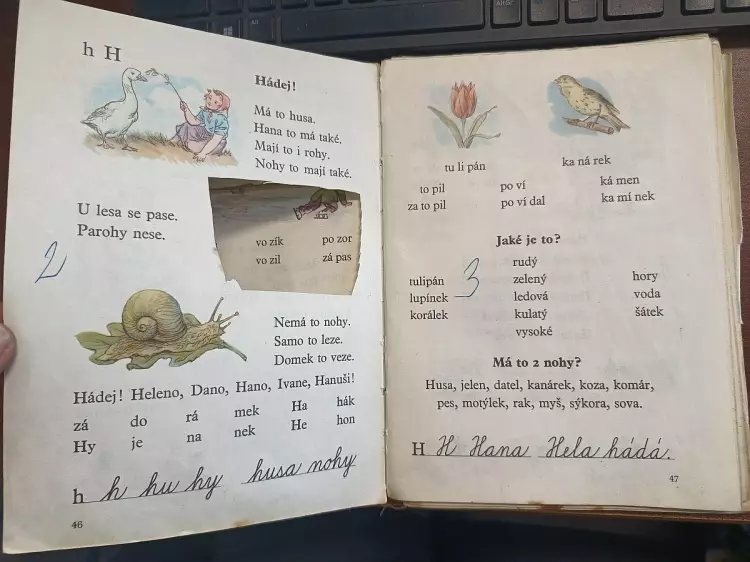 h H
Hádej!
Má to husa.
Hana to má také.
Mají to i rohy.
Nohy to mají také.
U lesa se pase.
Parohy nese.
vo zík po zor
vo zil zá pas
2
Nemá to nohy.
Samo to leze.
Domek to veze.
Hádej! Heleno, Dano, Hano, Ivane, Hanuši!
zá do rá mek Ha hák
Hy je na nek He hon
h h hu hy husa nohy
46
tu li pán ka ná rek
to pil po ví ká men
za to pil po ví dal ka mí nek
Jaké je to?
rudý
tulipán zelený hory
lupínek ledová voda
korálek kulatý šátek
vysoké
3
Má to 2 nohy?
Husa, jelen, datel, kanárek, koza, komár,
pes, motýlek, rak, myš, sýkora, sova.
H H Hana Hela hádá.
47